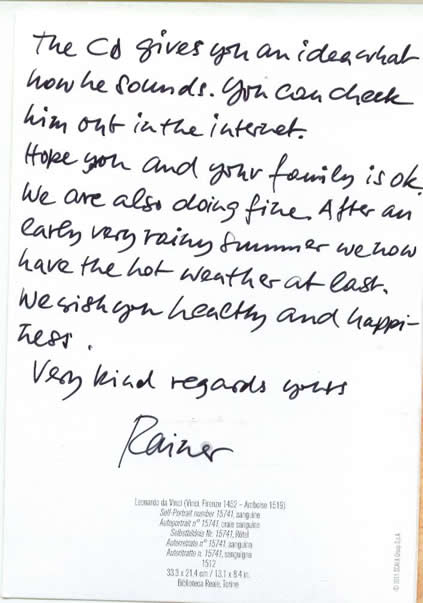 The CD gives you an idea what
how he sounds. You can check
him out in the internet.
Hope you and your family is ok.
We are also doing fine. After an
early very rainy summer we now
have the hot weather at last.
We wish you healthy and happi-
ness.
Very kind regards yours
Rainer
Leonardo da Vinci (Vinci, Firenze 1452 – Amboise 1519)
Self-Portrait number 15741, sanguine
Autoportrait n° 15741, craie sanguine
Selbstbildnis Nr. 15741, Rötel
Autorretrato n° 15741, sanguina
Autoritratto n. 15741, sanguigna
1512
33.3 x 21.4 cm / 13.1 x 8.4 in.
Biblioteca Reale, Torino